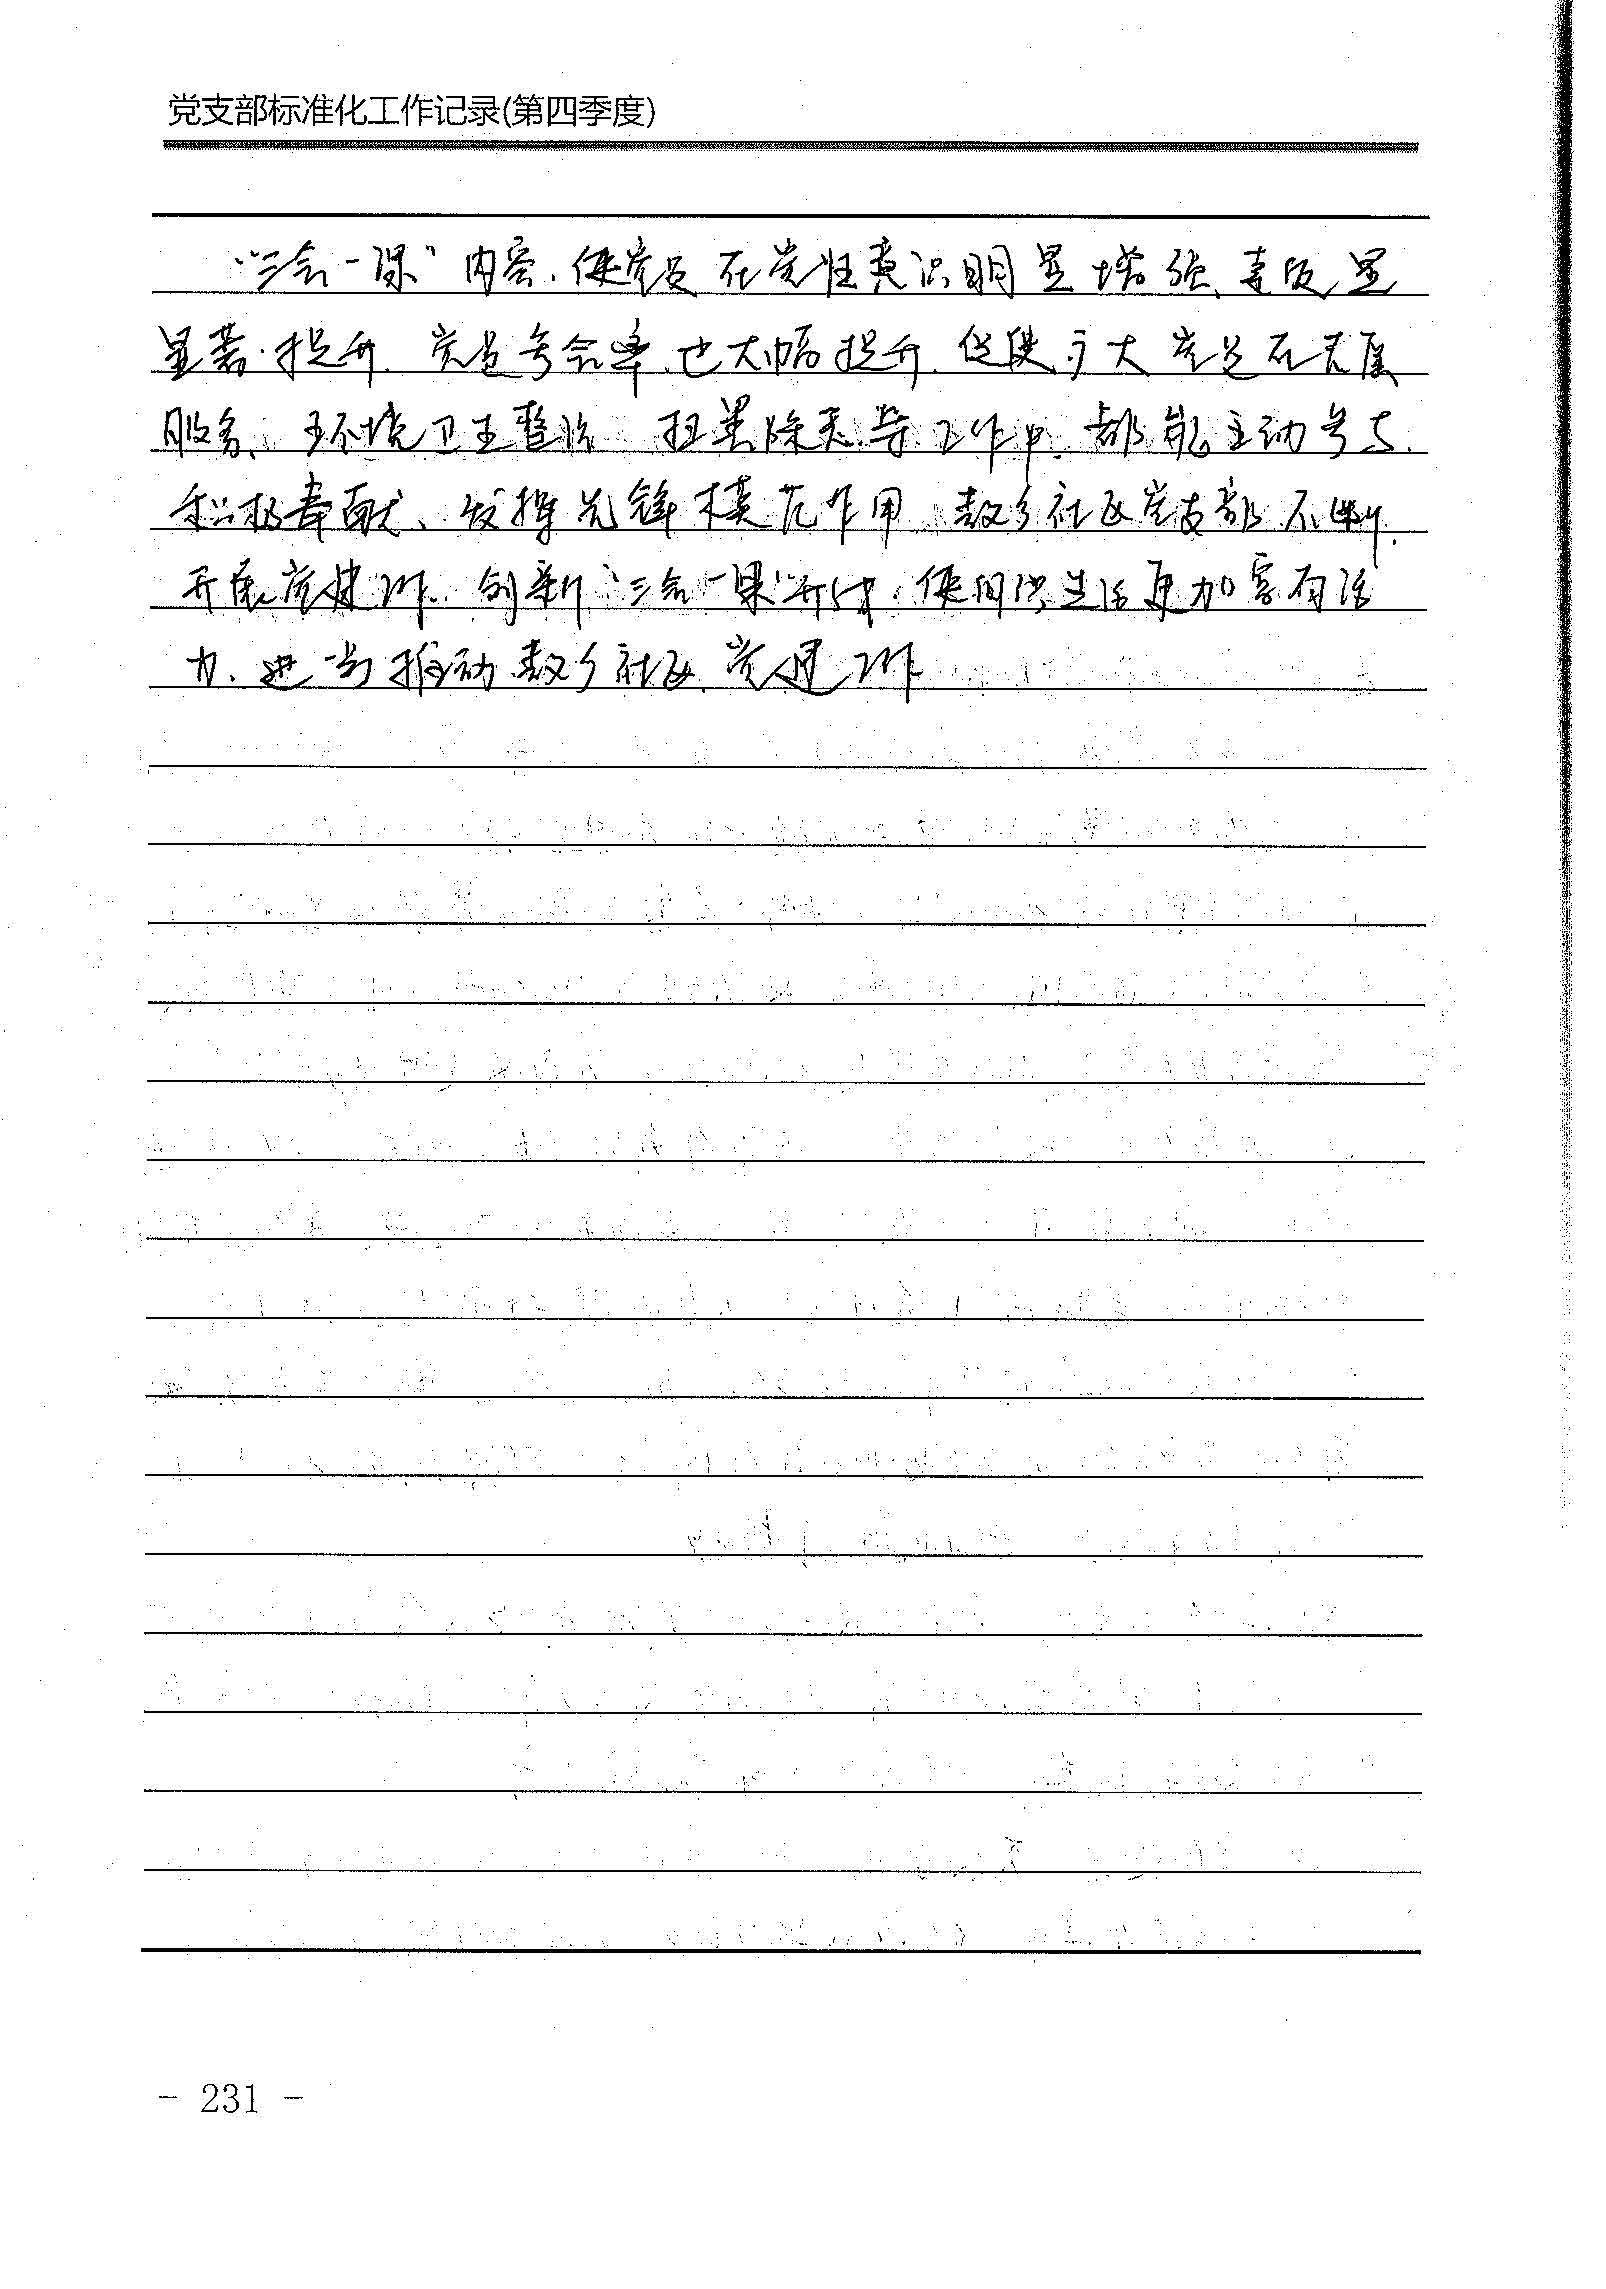 党支部标准化工作记录(第四季度)
“三会一课”内容,使党员在党性意识明显增强、素质显
显著提升,党员参会率也大幅提升,促使广大党员在志愿
服务、环境卫生整治 扫黑除恶等工作中,都能主动参与,
积极奉献、发挥先锋模范作用,敖乡社区党支部不断
开展党建工作,创新“三会一课”形式,使组织生活更加富有活
力,进一步推动敖乡社区党建工作
- 231 -